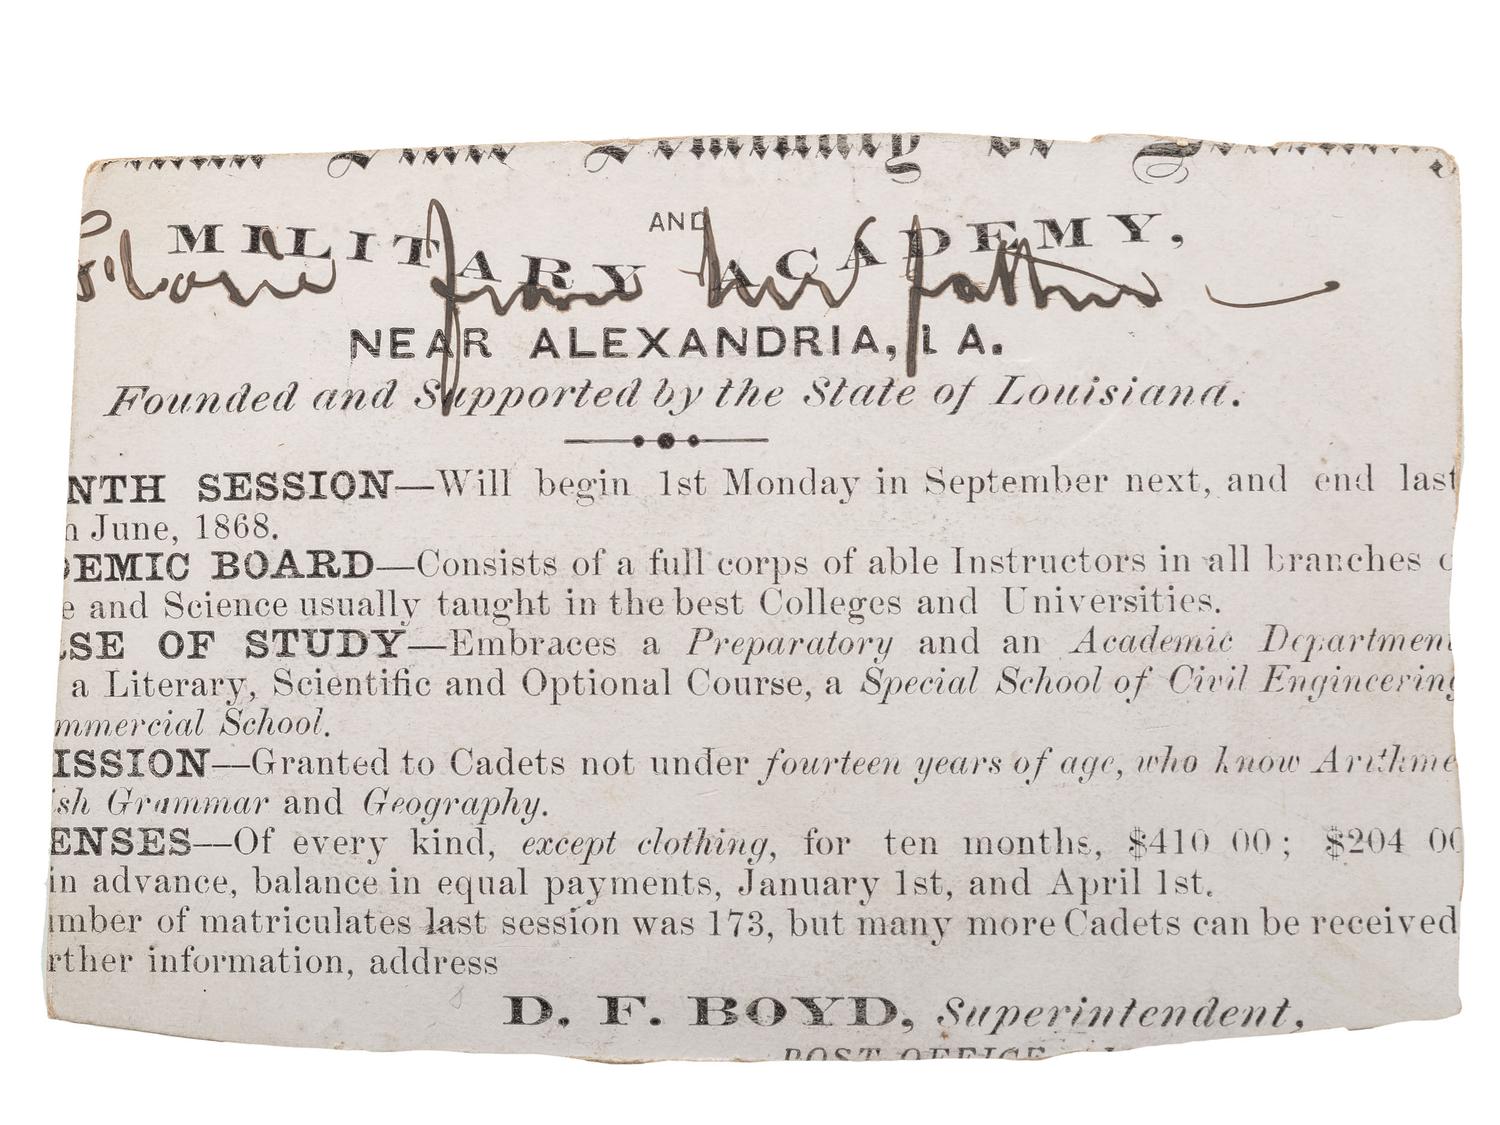 AND
MILITARY ACADEMY,
from her father
NEAR ALEXANDRIA, LA.
Founded and Supported by the State of Louisiana.
NTH SESSION—Will begin 1st Monday in September next, and end last
n June, 1868.
DEMIC BOARD—Consists of a full corps of able Instructors in all branches o
e and Science usually taught in the best Colleges and Universities.
SE OF STUDY—Embraces a Preparatory and an Academic Department
a Literary, Scientific and Optional Course, a Special School of Civil Engineering
mmercial School.
ISSION—Granted to Cadets not under fourteen years of age, who know Arithme
sh Grammar and Geography.
ENSES—Of every kind, except clothing, for ten months, $410 00; $204 00
in advance, balance in equal payments, January 1st, and April 1st.
umber of matriculates last session was 173, but many more Cadets can be received
rther information, address
D. F. BOYD, Superintendent,
POST OFFICE